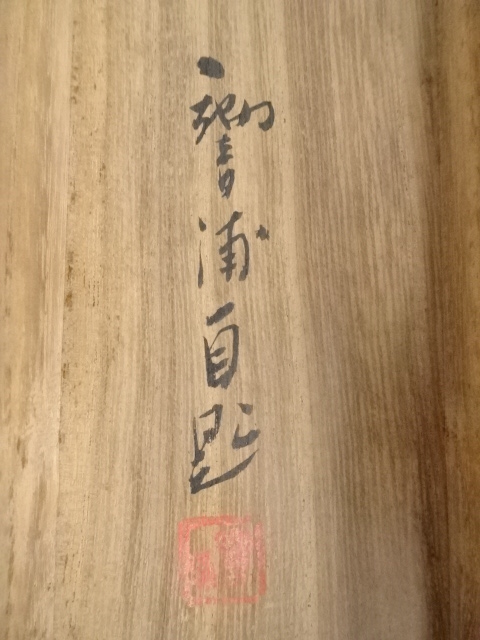 響浦自題